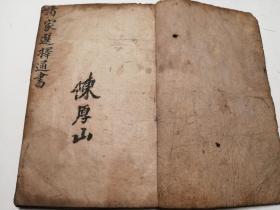 諸家選擇通書
陳厚山